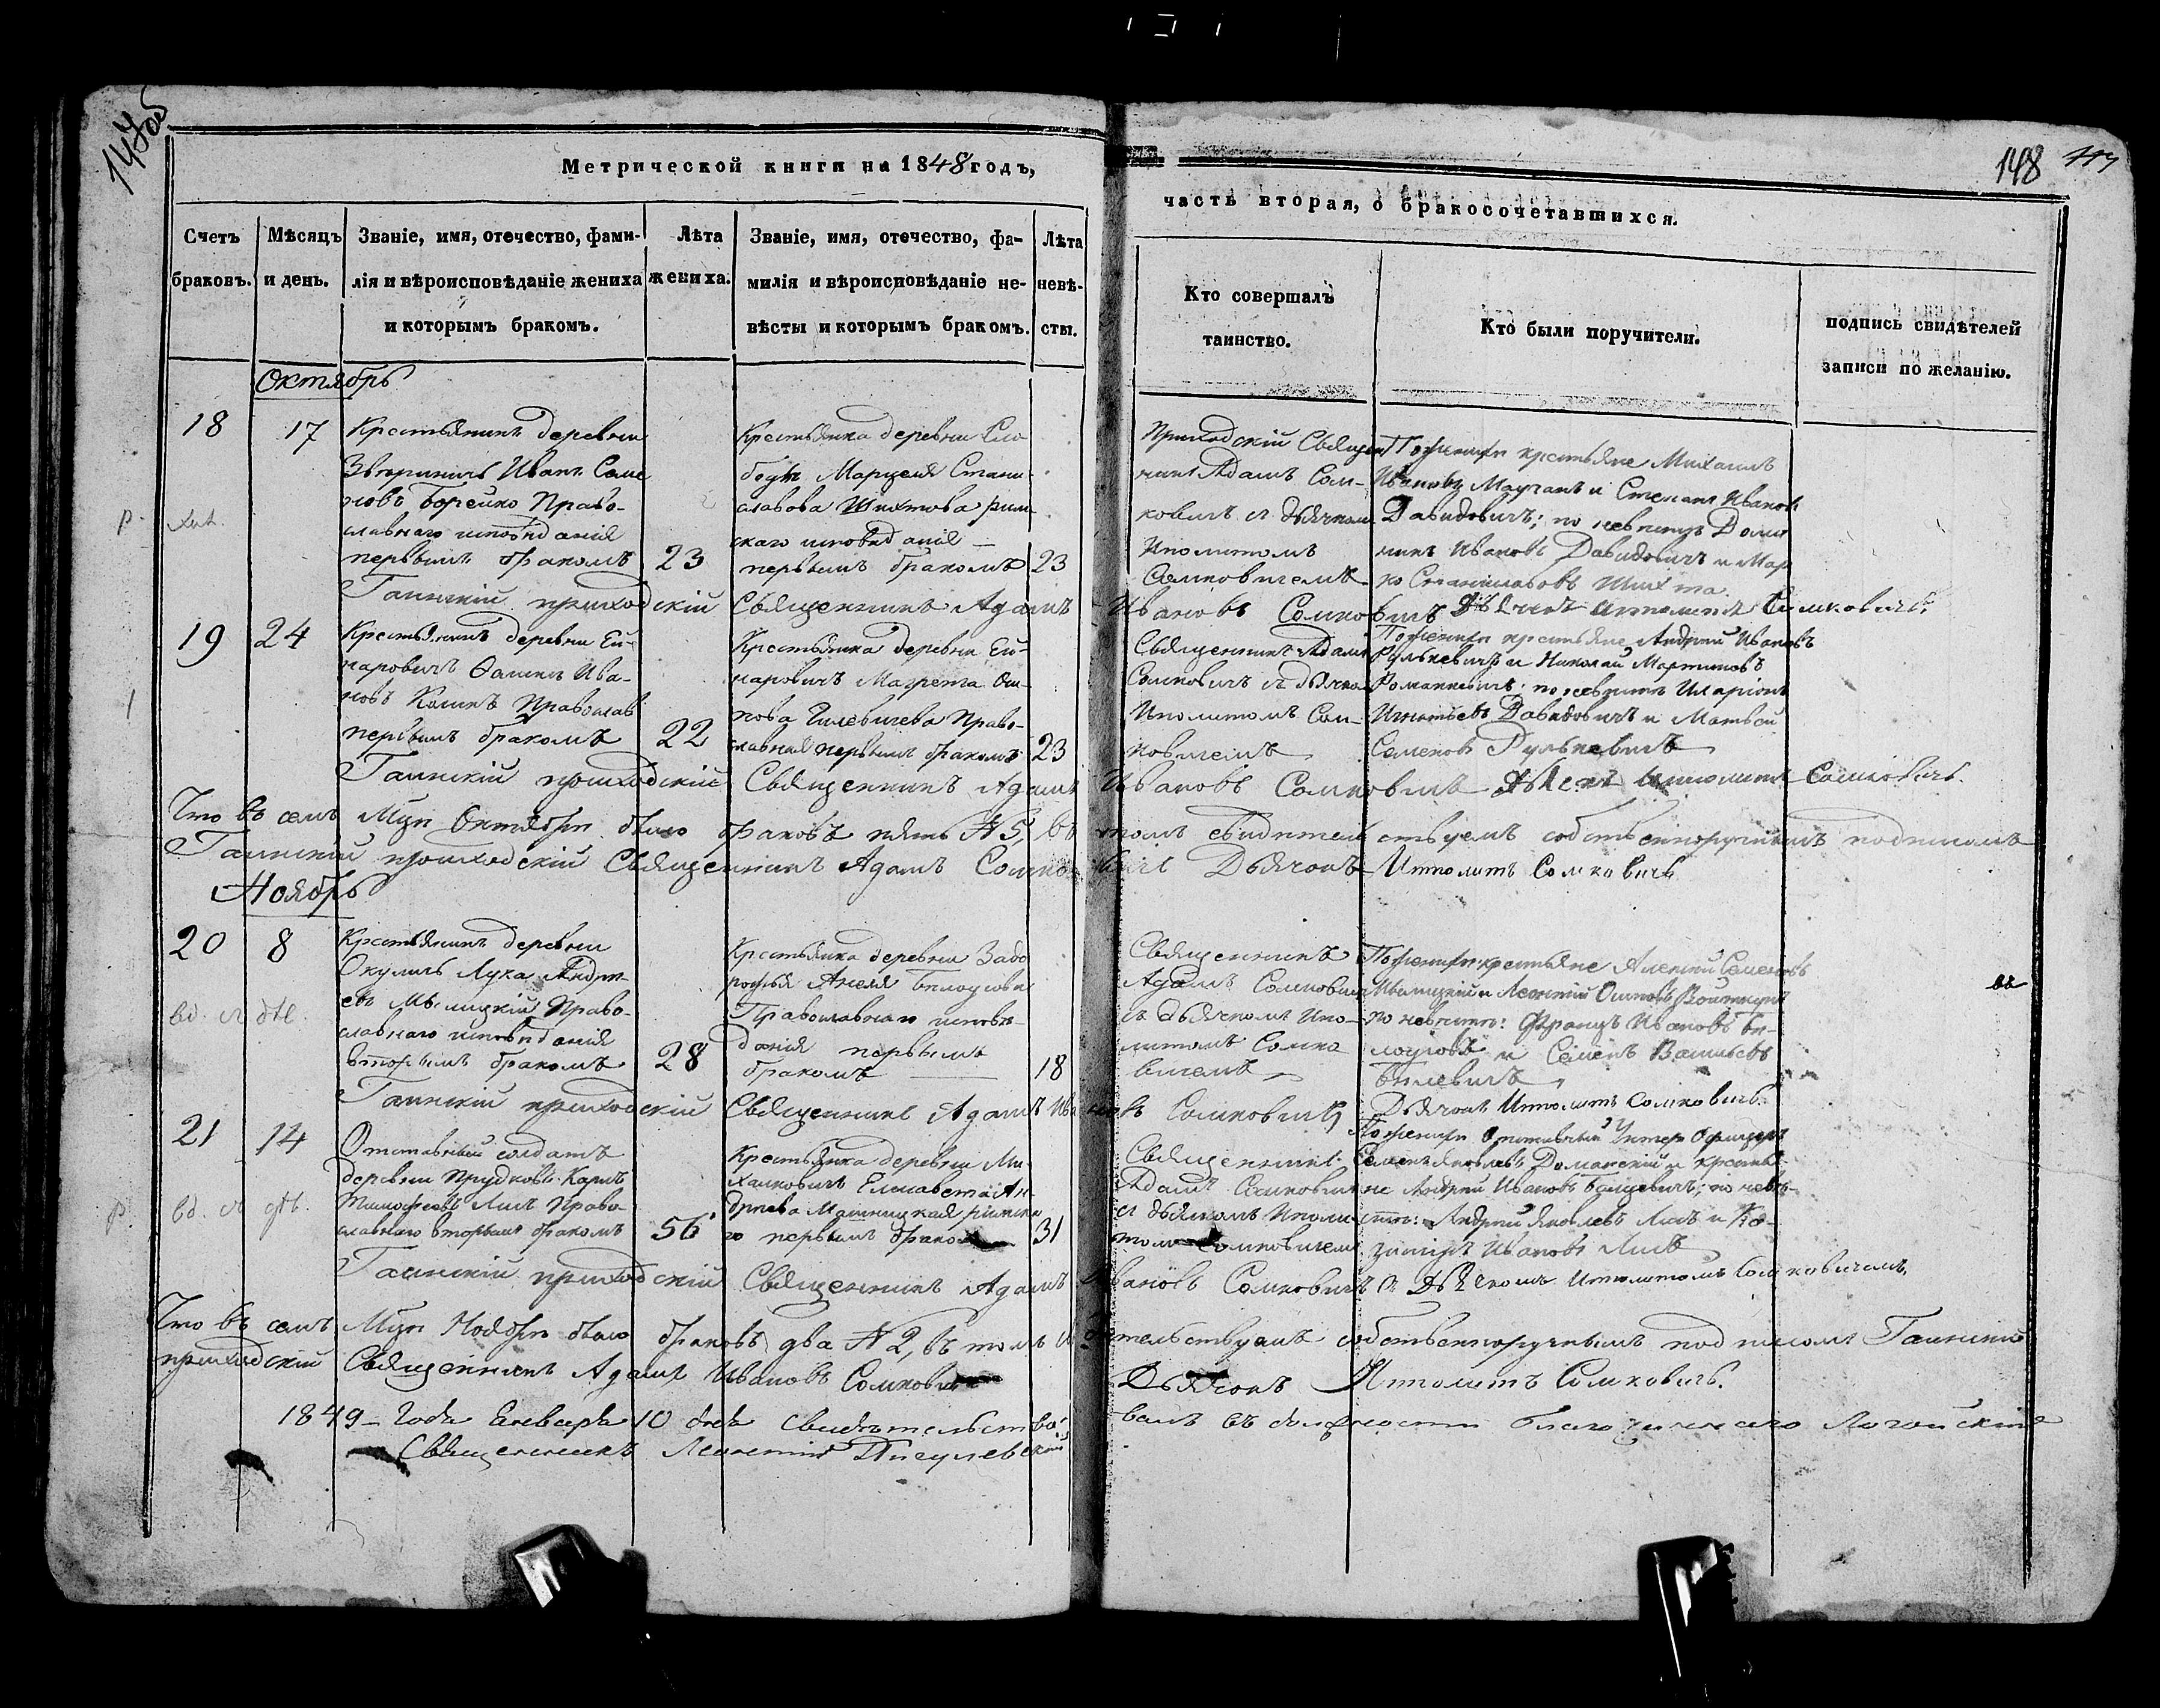 147 об
148
Метрической книги на 1848 годъ,
часть вторая, о бракосочетавшихся.
Счетъ браковъ.
Мѣсяцъ и день.
Званіе, имя, отечество, фами-
лія и вѣроисповѣданіе жениха
и которымъ бракомъ.
Лѣта
жениха.
Званіе, имя, отечество, фа-
милія и вѣроисповѣданіе не-
вѣсты и которымъ бракомъ.
Лѣта
невѣ-
сты.
Кто совершалъ
таинство.
Кто были поручители.
подпись свидѣтелей
записи по желанію.
Октябрь
18
17
Крестьянинъ деревни
Иванъ Семе
новъ Борейко Право-
славнаго исповѣданія
первымъ бракомъ
23
Крестьянка деревни Сло
боды Марцеля Стани-
славова Шихтова рим-
скаго исповѣданія
первымъ бракомъ
23
Приходскій Священ
никъ Адамъ Сом-
ковичъ съ дьячкомъ
Иполитомъ
Сомковичемъ
По женихѣ крестьяне Михаилъ
Ивановъ и Степанъ Ивановъ
Давидовичъ; по невѣстѣ Доми
никъ Ивановъ Давидовичъ и Мар
ко Станиславовъ Шихта
Гаинскій приходскій Священникъ Адамъ Ивановъ Сомковичъ Дьячекъ Ипполитъ Сомковичъ.
19
24
Крестьянинъ деревни Ей-
наровичъ Ѳаминъ Ива-
новъ Православ
первымъ бракомъ
22
Крестьянка деревни Ей-
наровичъ Магрета Оси-
пова Гилевичева Право-
славная первымъ бракомъ
23
Священникъ Адамъ
Сомковичъ съ дьячко
Иполитомъ Сом-
ковичемъ
По женихѣ крестьяне Андрей Ивановъ
Рулькевичъ и Николай Мартиновъ
Романкевичъ; по невѣстѣ Иларіонъ
Игнатьевъ Давидовичъ и Матвей
Семеновъ Рулькевичъ
Гаинскій приходскій Священникъ Адамъ Ивановъ Сомковичъ Дьячекъ Ипполитъ Сомковичъ.
Что въ семъ Мцѣ Октябрѣ было браковъ пять № 5, въ томъ свидѣтельствуемъ собственноручнымъ подписомъ
Гаинскій приходскій Священникъ Адамъ Сомковичъ Дьячокъ Ипполитъ Сомковичъ
Ноябрь
20
8
вд. съ дѣв.
Крестьянинъ деревни
Окулить Лука Андре-
евъ Мылицкій Право-
славнаго исповѣданія
вторымъ бракомъ
28
Крестьянка деревни Задо
рожья Анеля
Православнаго исповѣ-
данія первымъ
бракомъ
18
Священникъ
Адамъ Сомковичъ
съ дьячкомъ Ипо-
литомъ Сомко
вичемъ
По женихѣ крестьяне Алексій Семеновъ
Мылицкій и Леонтій Осиповъ
по невѣстѣ: Францъ Ивановъ Бѣ-
и Семенъ Васильевъ
Гилевичъ
Гаинскій приходскій Священникъ Адамъ Ивановъ Сомковичъ
Дьячокъ Ипполитъ Сомковичъ
21
14
вд. съ дѣв.
Отставный солдатъ
деревни Прудковъ Карпъ
Тимофеевъ Лисъ Право-
славнаго вторымъ бракомъ
56
Крестьянка деревни Ми-
халковичъ Елисавета Ан-
дреева римска
го первымъ бракомъ
31
Священникъ
Адамъ Сомковичъ
съ дьячкомъ Иполи-
томъ Сомковичемъ
По женихѣ Отставный Унтеръ Офицеръ
Семенъ Яковлевъ Доманскій и крестья-
не Андрей Ивановъ; по невѣ-
стѣ: Андрей Яковлевъ Лисъ и Ка-
зиміръ Ивановъ Лисъ
Гаинскій приходскій Священникъ Адамъ Ивановъ Сомковичъ съ Дьячкомъ Ипполитомъ Сомковичемъ.
Что въ семъ Мцѣ Ноябрѣ было браковъ два № 2, въ томъ свидѣтельствуемъ собственноручнымъ подписомъ Гаинскій
приходскій Священникъ Адамъ Ивановъ Сомковичъ Дьячокъ Ипполитъ Сомковичъ.
1849 Года Генваря 10 дня свидѣтельствовалъ въ должности благочиннаго Логойскій
Священникъ Леонтій